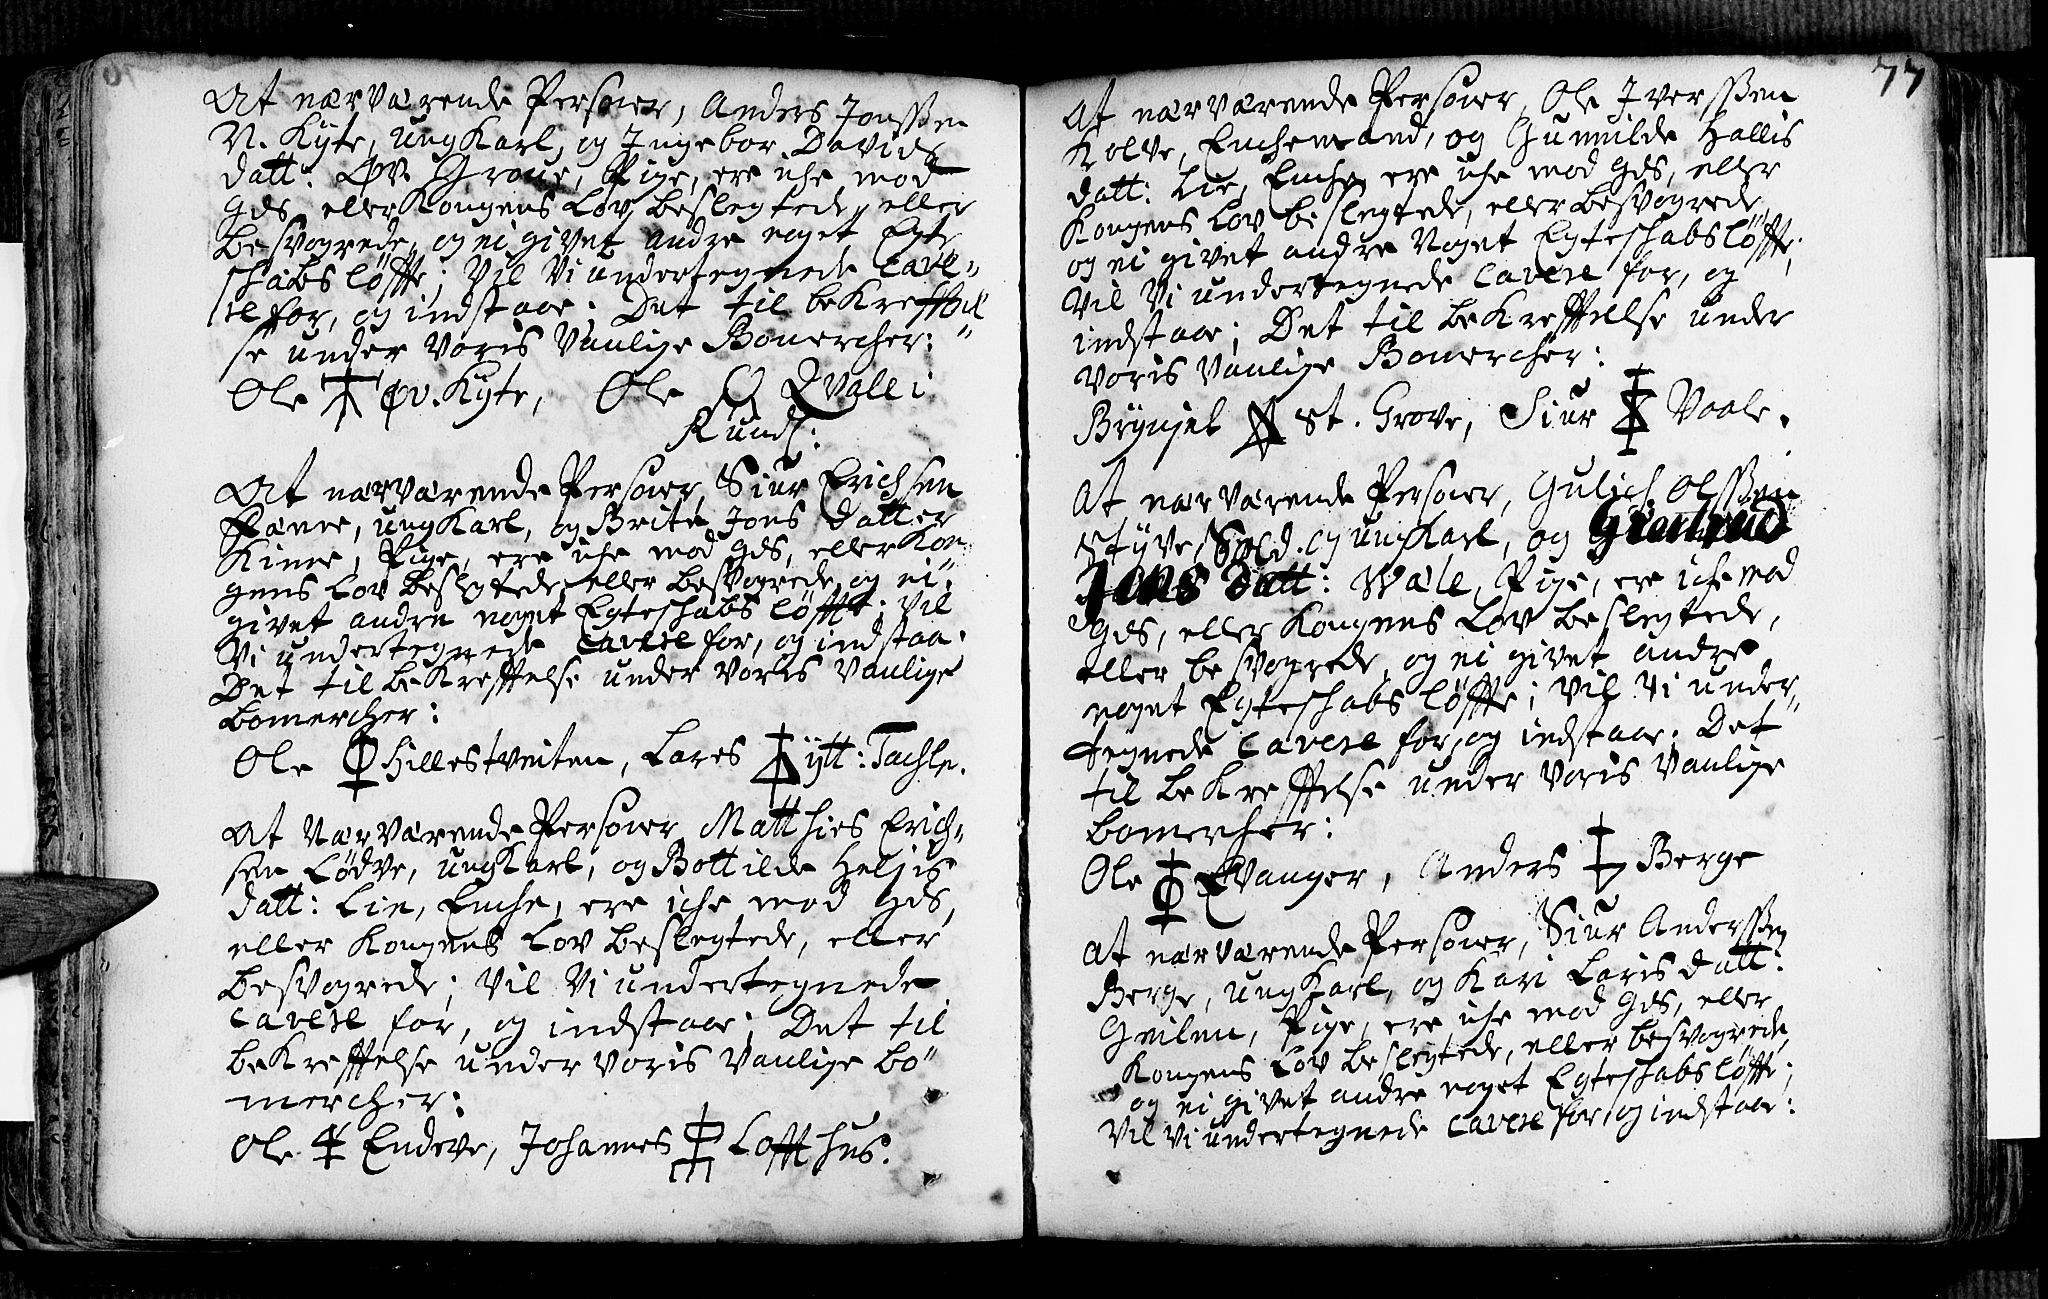 At nærværende Personer, Anders Jonssen
N. Kyte, ungKarl, og Ingebor Davids
datt: Øv. Grove, Pige, ere iche mod
Gds eller Kongens Lov beslegtede, eller
besvogrede, og ei givet andre noget Egte
schabs løffte; Vil Vi undertegnede cave-
re for, og indstaae: Det til bekreffel
se under voris Vanlige Bomercher:
Ole Øv. Kyte, Ole Qvalli
Runds:
At nærværende Personer, Siur Erichsen
Fænne, ungKarl, og Brite Jons datter
Kinne, Pige, ere iche mod Gds, eller Kon
gens Lov beslegtede, eller besvogrede, og ei
givet andre noget Egteschabs løffte; Vil
Vi undertegnede cavere for, og indstaa.
Det til bekreffelse under Voris Vanlige
bomercher:
Ole Hillestveiten, Lares ytt: Tachle.
At Nærværende Personer Matthies Erich-
sen Lødve, ungKarl, og Bottilde Heljis
datt: Lie, Enche, ere iche mod Gds,
eller Kongens Lov beslegtede, eller
besvogrede; Vil Vi undertegnede
cavere for, og indstaae; Det til
bekreffelse under voris Vanlige bo
mercher:
Ole Endeve, Johannes Loffthus.
77
At nærværende Personer, Ole Iverssen
Kolve, Enchemand, og Gunnilde Hallis
datt: Lie, Enche, ere iche mod Gds, eller
Kongens Lov beslegtede, eller besvogrede,
og ei givet andre Noget Egteschabs løffte;
Vil Vi undertegnede cavere for, og
indstaae; Det til bekreffelse under
voris Vanlige Bomercher:
Brynjel St. Grove, Siur Vaale.
At nærværende Personer, Gulich Olssen
Styve, Sold. og ungKarl, og Giertrud
Jens datt: Wæle, Pige, ere iche mod
Gds, eller Kongens Lov beslegtede,
eller besvogrede, og ei givet andre
noget Egteschabs løffte; Vil Vi under-
tegnede cavere for, og indstaae. Det
til bekreffelse under Voris Vanlige
bomercher:
Ole Evanger, Anders Berge
At nærværende Personer, Siur Anderssen
Berge, ungKarl, og Kari Laris datt:
Geilen, Pige, ere iche mod Gds, eller
Kongens Lov beslegtede, eller besvogrede,
og ei givet andre noget Egteschabs løffte;
Vil Vi undertegnede cavere for, og indstaae: